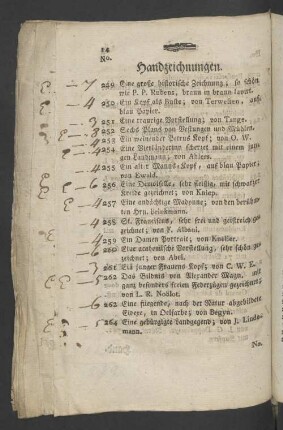 14
No.
Handzeichnungen.
E — 7 249 Eine große historische Zeichnung; so schön
wie P. P. Rubens, braun in braun lavirt.
— 4 250 Ein Kopf als Büste; von Terwesten, auf
blau Papier.
— 3 251 Eine traurige Vorstellung; von Tango.
252 Sechs Plans von Vestungen und Mühlen.
253 Ein weinender Petrus Kopf; von O. W.
— 4 254 Eine scherzet mit einem jun-
gen Landmann; von Ahlers.
— 4 255 Ein alter Manns-Kopf, auf blau Papier;
von Ewald.
— 6 256 Eine Demoiselle, sehr fleißig, mit schwarzer
Kreide gezeichnet; von Kniep.
— 4 257 Eine andächtige Madonna; von dem berühm-
ten Hrn. Beinkmann.
258 St. Franciscus, sehr frei und geistreich ge-
zeichnet; von F. Albani.
— 4 259 Ein Damen Portrait; von Kneller.
260 Eine anatomische Vorstellung, sehr schön ge-
zeichnet; von Abel.
— 3 261 Ein junger Frauens Kopf; von C. W. E.
E — 5 262 Das Bildniß von Alexander Magn. mit
ganz besonders freien Federzügen gezeichnet;
von L. R. Noblot.
— 6 263 Eine singende, nach der Natur abgebildete
in Oelfarbe; von Begyn.
— 5 264 Eine gebürgigte Landgegend; von J. Linde-
mann.
No.